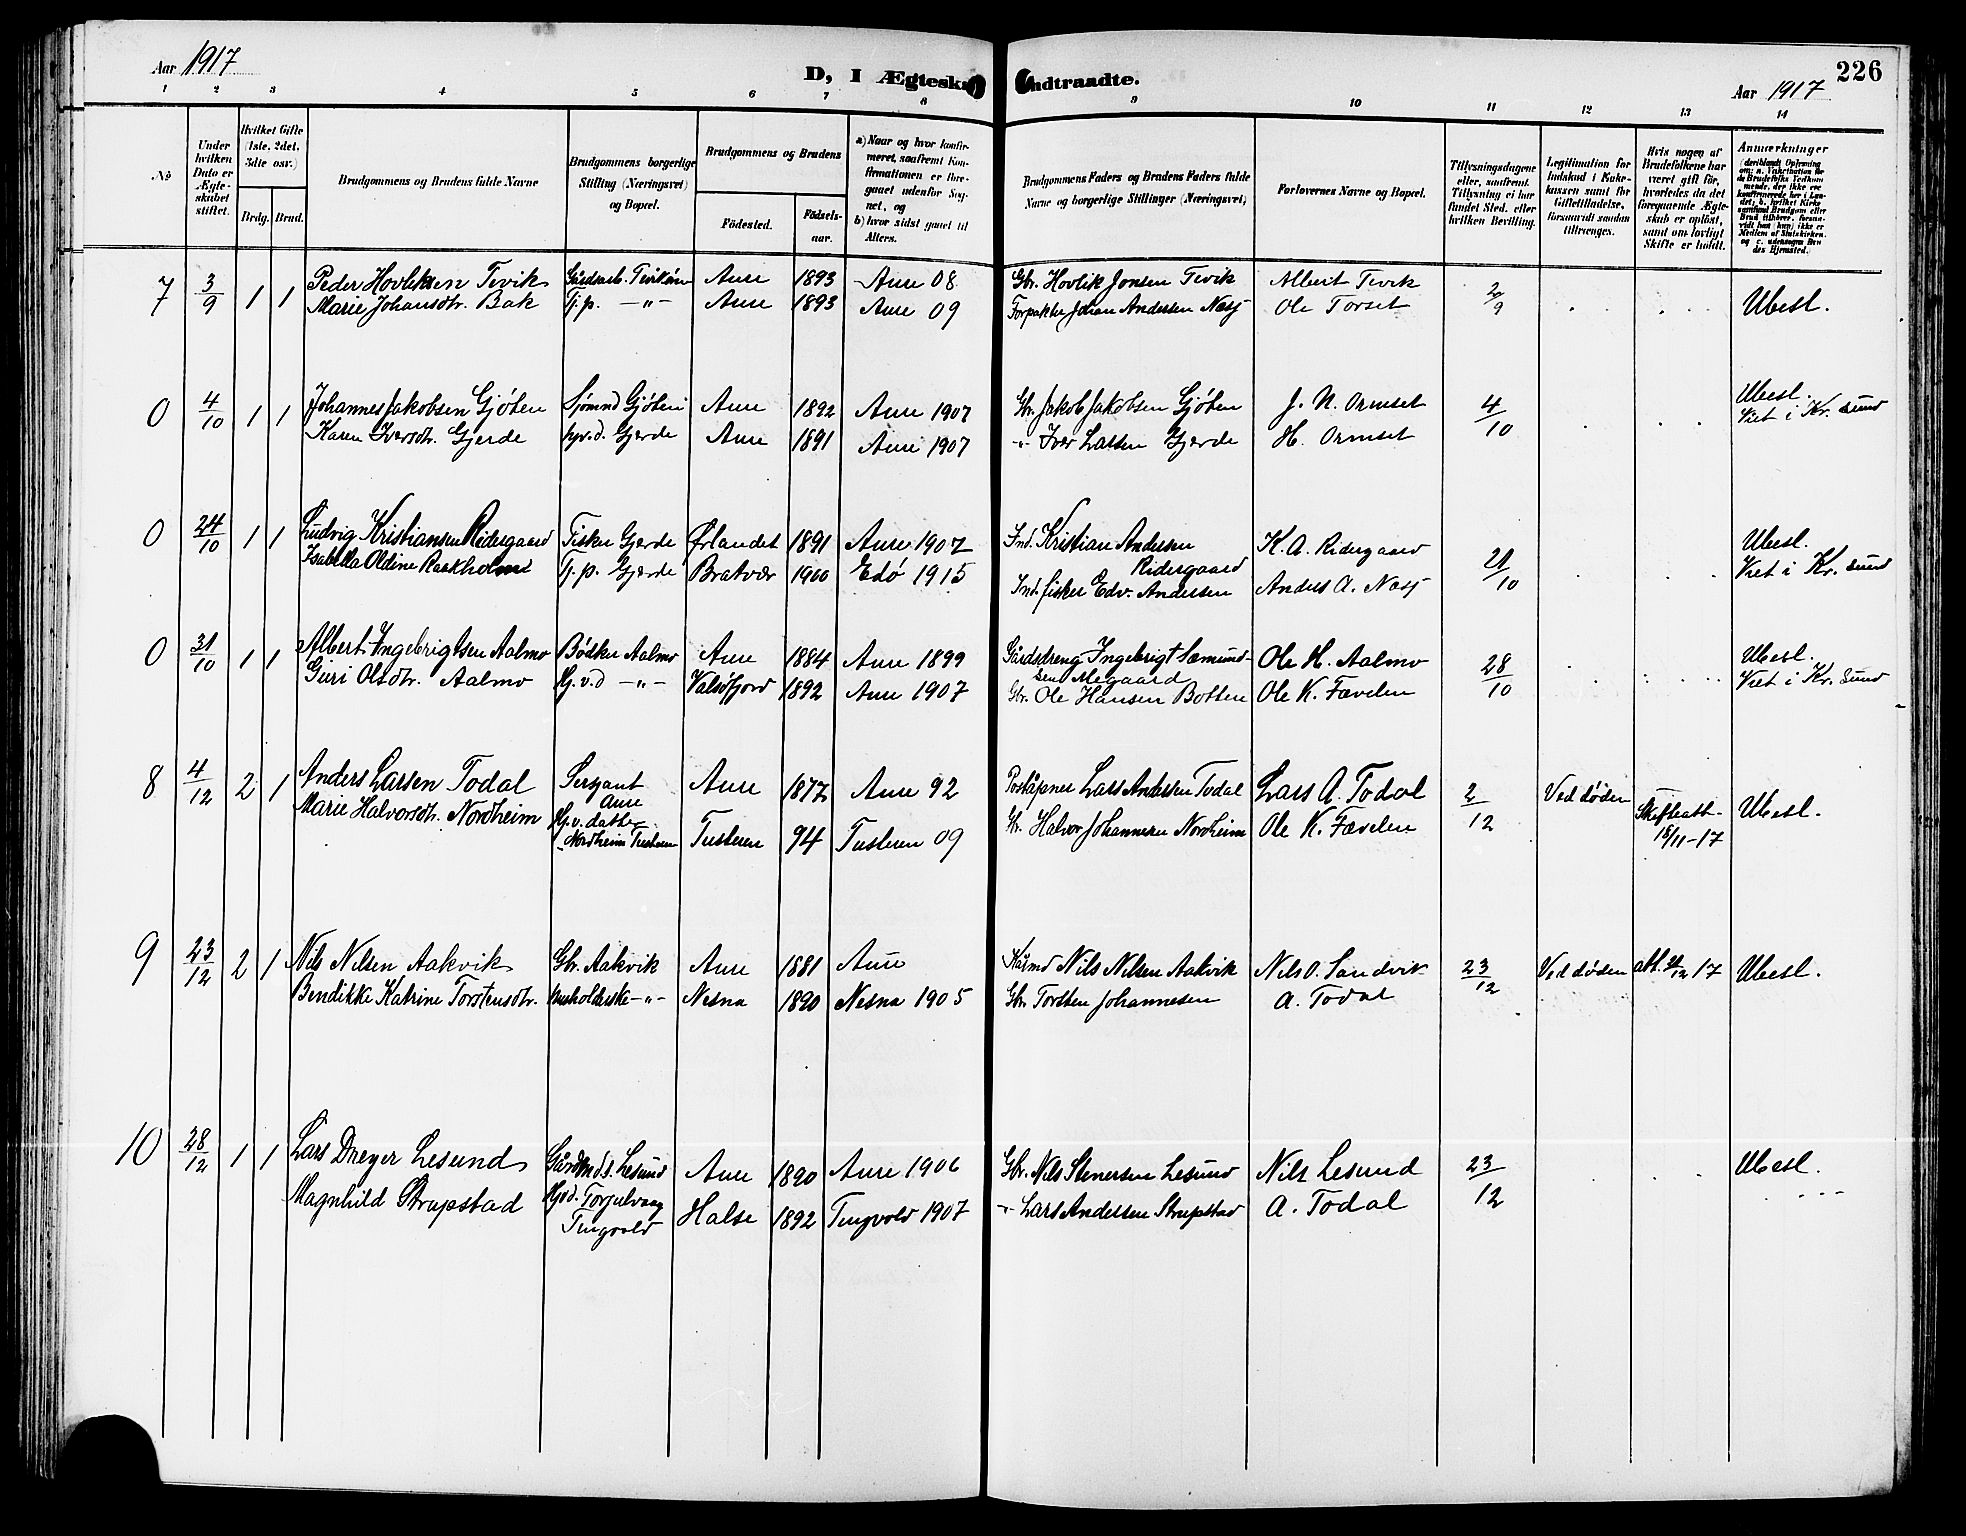 Aar 1917
D, I Ægtesk
Indtraadte.
Aar 1917
226
1 2 3 4 5 6 7 8 9 10 11 12 13 14
No
Under hvilken Dato er Ægteskabet stiftet.
Hvilket Gifte (1ste, 2det, 3die osv.)
Brdg. Brud.
Brudgommens og Brudens fulde Navne
Brudgommens borgerlige Stilling (Næringsvei) og Bopæl.
Brudgommens og Brudens
Fødested.
Fødselsaar.
a) Naar og hvor konfirmeret, saafremt Konfirmationen er foregaaet udenfor Sognet, og
b) hvor sidst gaaet til Alters.
Brudgommens Faders og Brudens Faders fulde Navne og borgerlige Stillinger (Næringsvei)
Forlovernes Navne og Bopæl.
Tillysningsdagene eller, saafremt Tillysning ei har fundet Sted, efter hvilken Bevilling.
Legitimation for Indskud i Enkekassen samt for Giftetilladelse, forsaavidt saadan tiltrænges.
Hvis nogen af Brudefolkene har været gift før, hvorledes da det foregaaende Ægteskab er opløst, samt om lovligt Skifte er holdt.
Anmærkninger
7 3/9 1 1 Peder Hovliksen Tevik Aure 1893 Aure 08 Gbr. Hovlik Jonsen Tevik Albert Tevik 2/9
Marie Johansdtr. Bak Tj. p. -"- Aure 1893 Aure 09 Forpakter Johan Andersen Nesj Ole Torset Ubesl.
0 4/10 1 1 Johannes Jakobsen Gjøten Sjømnd Gjøten Aure 1892 Aure 1907 Gbr. Jakob Jakobsen Gjøten J. N. Ormset 4/10 Ubesl.
Karen Iversdtr. Gjerde hjv.d. Gjerde Aure 1891 Aure 1907 -"- Iver Larsen Gjerde H. Ormset Viet i Kr. sund
0 24/10 1 1 Ludvig Kristiansen Ridergaard Fisker Gjerde Ørlandet 1891 Aure 1907 Ind. Kristian Andersen Ridergaard K. A. Ridergaard 21/10 Ubesl.
Isabella Oldine Raakholm Tj. p. Gjerde Bratvær 1900 Edø 1915 Ind. fisker Edv. Andersen Anders A. Nesj Viet i Kr. sund
0 31/10 1 1 Albert Ingebrigtsen Aalmo Bødker Aalmo Aure 1884 Aure 1899 Gårdsdreng Ingebrigt Sæmundsen Megaard Ole H. Aalmo 28/10 Ubesl.
Guri Olsdtr. Aalmo Hj.v.d -"- Valsøfjord 1892 Aure 1907 Gbr. Ole Hansen Botten Ole K. Fævelen Viet i Kr. sund
8 4/12 2 1 Anders Larsen Todal Sergant Aure Aure 1877 Aure 92 Poståpner Lars Andersen Todal Lars A. Todal 2/12 Ved døden Skifteatt. 15/11-17 Ubesl.
Marie Halvorsdtr. Nordheim Hj.v. datter Nordheim Tusteren Tusteren 94 Tusteren 09 Gbr. Halvor Johannesen Nordheim Ole K. Fævelen
9 23/12 2 1 Nils Nilsen Aakvik Gbr. Aakvik Aure 1881 Aure Kårmd Nils Nilsen Aakvik Nils O. Sandvik 23/12 Ved døden 17 Ubesl.
Bendikke Katrine Torstensdtr. husholderske -"- Nesna 1890 Nesna 1905 Gbr. Torsten Johannesen A. Todal
10 28/12 1 1 Lars Dreyer Lesund Gårdmds. Lesund Aure 1890 Aure 1906 Gbr. Nils Stenersen Lesund Nils Lesund 23/12 Ubesl.
Magnhild Strupstad Hjvd. Torjulvaag Tingvold Halse 1892 Tingvold 1907 -"- Lars Andersen Strupstad A. Todal